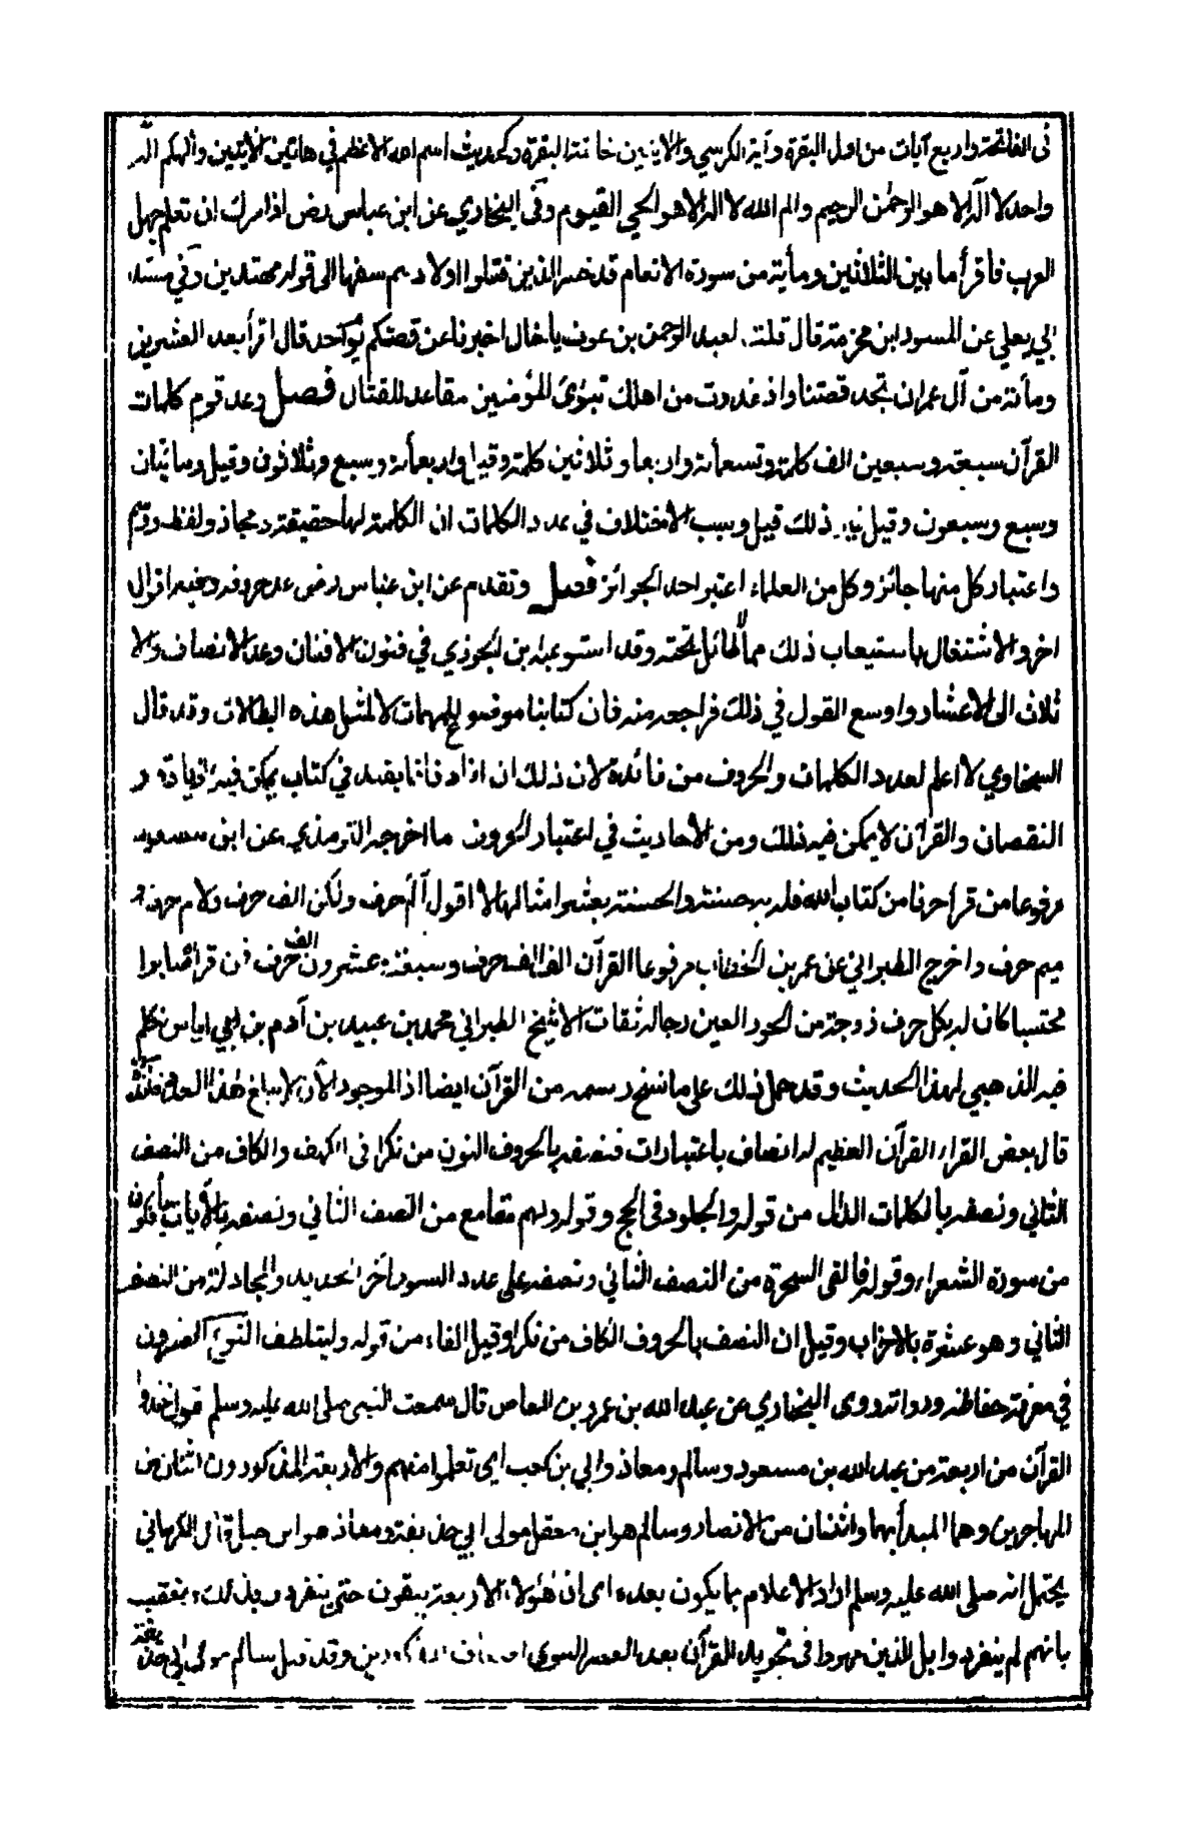 في الفاتحة واربع آيات من اول البقرة وآية الكرسي والآيتين خاتمة البقرة وكحديث اسم الله الاعظم في هاتين الآيتين والهكم اله
واحد لا اله الا هو الرحمن الرحيم والم الله لا اله الا هو الحي القيوم وفي البخاري عن ابن عباس رض اذا سرك ان تعلم جهل
العرب فاقرأ ما بين الثلاثين ومأية من سورة الانعام قد خسر الذين قتلوا اولادهم سفها الى قوله مهتدين وفي مسند
ابي يعلي عن المسور ابن مخرمة قال قلت لعبد الرحمن بن عوف يا خال اخبرنا عن قصتكم يوم احد قال اقرأ بعد العشرين
ومأته من آل عمران تجد قصتنا واذ غدوت من اهلك تبوئ المؤمنين مقاعد للقتال فصل وعد قوم كلمات
القرآن سبعة وسبعين الف كلمة وتسعمأته واربعا وثلاثين كلمة وقيل واربعمأة وسبع وثلاثون وقيل ومائتان
وسبع وسبعون وقيل غير ذلك قيل وسبب الاختلاف في عدد الكلمات ان الكلمة لها حقيقة ومجاز ولفظ ورسم
واعتبار كل منها جائز وكل من العلماء اعتبر احد الجوائز فصل وتقدم عن ابن عباس رضى عد حروفه وفيه اقوال
اخر والاشتغال باستيعاب ذلك مما لا طائل تحته وقد استوعبه ابن الجوزي في فنون الافنان وعد الانصاف والا
ثلاث الى الاعشار واوسع القول في ذلك فراجعه منه فان كتابنا موضوع للمهمات لا لمثل هذه البطالات وقد قال
السخاوي لا اعلم لعدد الكلمات والحروف من فائدة لان ذلك ان افاد فانما يفيد في كتاب يمكن فيه الزيادة و
النقصان والقرآن لا يمكن فيه ذلك ومن الاحاديث في اعتبار الحروف ما اخرجه الترمذي عن ابن مسعود
مرفوعا من قرأ حرفا من كتاب الله فله به حسنة والحسنة بعشر امثالها لا اقول آلم حرف ولكن الف حرف ولام حرف و
ميم حرف واخرج الطبراني عن عمر بن الخطاب مرفوعا القرآن الف الف حرف وسبعة وعشرون الف حرف فمن قرأ صابرا
محتسبا كان له بكل حرف زوجة من الحور العين رجاله ثقات الا شيخ الطبراني محمد بن عبيد بن آدم بن ابي اياس تكلم
فيه الذهبي لهذا الحديث وقد حمل ذلك على ما نسخ رسمه من القرآن ايضا اذ الموجود الآن لا يبلغ هذا العدد فائدة
قال بعض القراء القرآن العظيم له انصاف باعتبارات فنصفه بالحروف النون من نكرا في الكهف والكاف من النصف
الثاني ونصفه بالكلمات الدال من قوله والجلود في الحج وقوله ولهم مقامع من النصف الثاني ونصفه بالآيات يأفكون
من سورة الشعراء وقوله فالقى السحرة من النصف الثاني ونصفه على عدد السور آخر الحديد والمجادلة من النصف
الثاني وهو عشرة بالاحزاب وقيل ان النصف بالحروف الكاف من نكرا وقيل الفاء من قوله وليتلطف النوع العشرون
في معرفة حفاظه ورواته روى البخاري عن عبد الله بن عمرو بن العاص قال سمعت النبي صلى الله عليه وسلم يقول خذوا
القرآن من اربعة من عبد الله بن مسعود وسالم ومعاذ وابي بن كعب اي تعلموا منهم والاربعة المذكورون اثنان من
المهاجرين وهما المبدأ بهما واثنان من الانصار وسالم هو ابن معقل مولى ابي حذيفة ومعاذ هو ابن جبل قال الكرماني
يحتمل انه صلى الله عليه وسلم اراد الاعلام بما يكون بعده اى ان هؤلاء الاربعة يبقون حتى ينفردوا بذلك وتعقب
بانهم لم ينفردوا بل الذين مهروا في تجويد القرآن بعد العصر النبوي اضعاف المذكورين وقد قتل سالم مولى ابي حذيفة